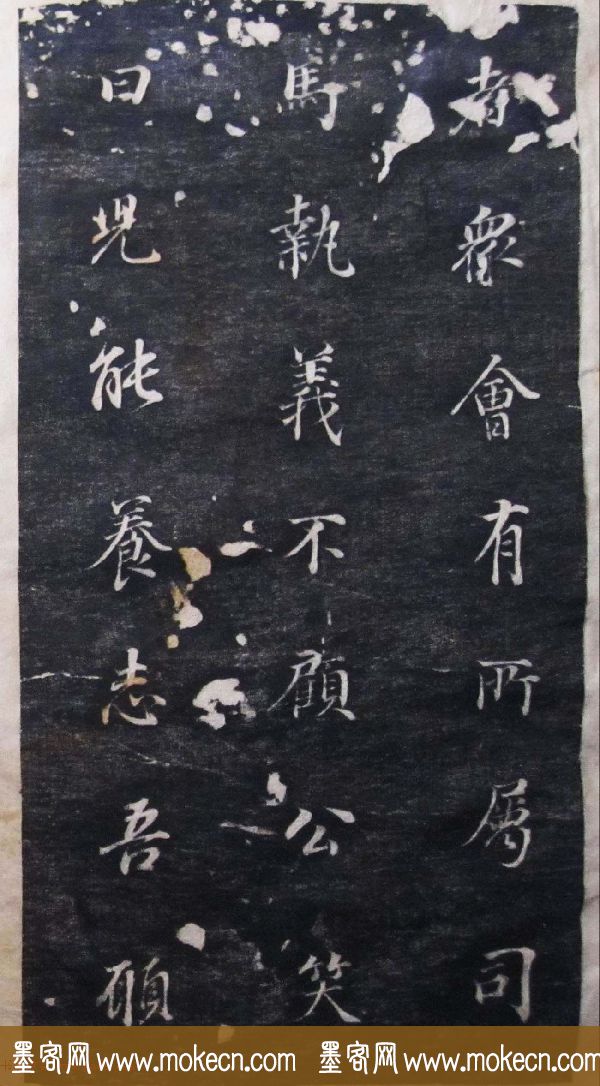 者衆會有所屬司
馬執義不顧公笑
曰児能養志吾願
墨客网 www.mokecn.com 墨客网 www.mokecn.com